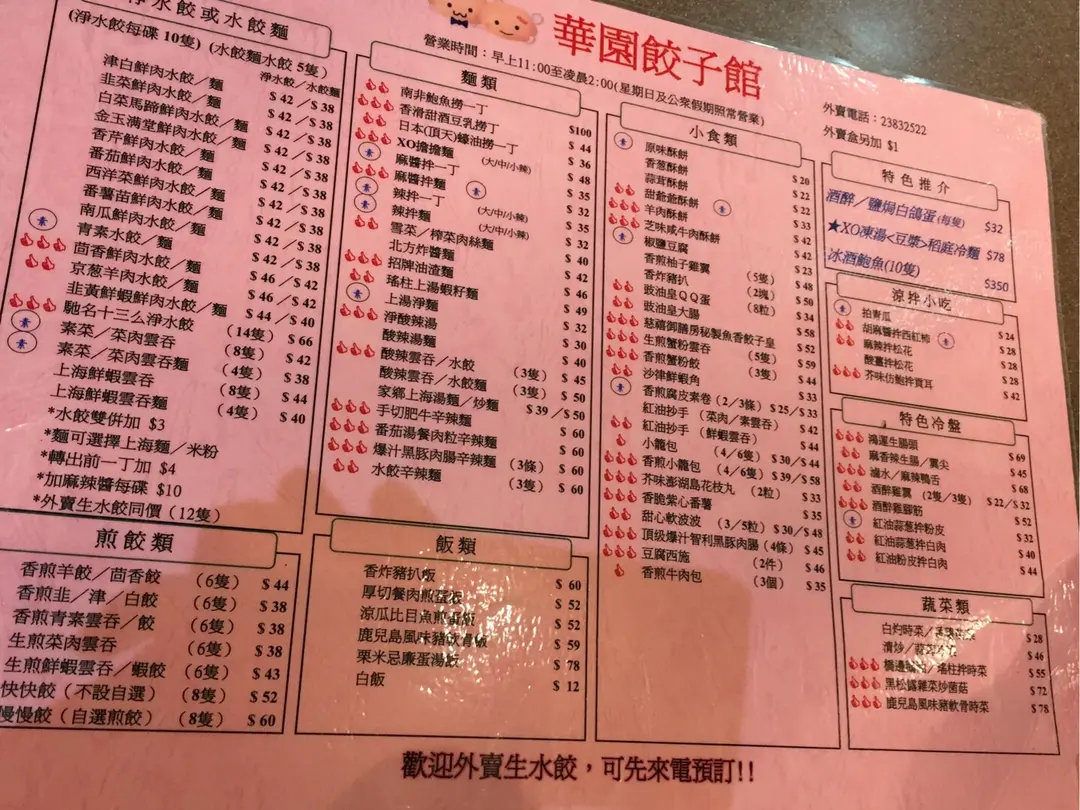 華園餃子館
營業時間：早上11:00至凌晨2:00(星期日及公眾假期照常營業)
外賣電話：23832522
外賣盒另加 $1
水餃或水餃麵
(淨水餃每碟 10隻) (水餃麵水餃 5隻)
淨水餃／水餃麵
津白鮮肉水餃／麵 $ 42 ／$ 38
韭菜鮮肉水餃／麵 $ 42 ／$ 38
白菜馬蹄鮮肉水餃／麵 $ 42 ／$ 38
金玉滿堂鮮肉水餃／麵 $ 42 ／$ 38
香芹鮮肉水餃／麵 $ 42 ／$ 38
番茄鮮肉水餃／麵 $ 42 ／$ 38
西洋菜鮮肉水餃／麵 $ 42 ／$ 38
番薯苗鮮肉水餃／麵 $ 42 ／$ 38
素 南瓜鮮肉水餃／麵 $ 42 ／$ 38
青素水餃／麵 $ 42 ／$ 38
茴香鮮肉水餃／麵 $ 46 ／$ 42
京葱羊肉水餃／麵 $ 46 ／$ 42
韭黃鮮蝦鮮肉水餃／麵 $ 44 ／$ 40
馳名十三么淨水餃 (14隻) $ 66
素 素菜／菜肉雲吞 (8隻) $ 42
素 素菜／菜肉雲吞麵 (4隻) $ 38
上海鮮蝦雲吞 (8隻) $ 44
上海鮮蝦雲吞麵 (4隻) $ 40
*水餃雙併加 $3
*麵可選擇上海麵／米粉
*轉出前一丁加 $4
*加麻辣醬每碟 $10
*外賣生水餃同價 (12隻)
煎餃類
香煎羊餃／茴香餃 (6隻) $ 44
香煎韭／津／白餃 (6隻) $ 38
香煎青素雲吞／餃 (6隻) $ 38
生煎菜肉雲吞 (6隻) $ 38
生煎鮮蝦雲吞／蝦餃 (6隻) $ 43
快快餃 (不設自選) (8隻) $ 52
慢慢餃 (自選煎餃) (8隻) $ 60
麵類
南非鮑魚撈一丁 $100
香滑甜酒豆乳撈一丁 $ 44
日本(頂天)蠔油撈一丁 $ 36
XO擔擔麵 (大/中/小辣) $ 48
素 麻醬拌一丁 $ 35
麻醬拌麵 素 $ 32
素 辣拌一丁 (大/中/小辣) $ 35
素 辣拌麵 (大/中/小辣) $ 32
雪菜／榨菜肉絲麵 $ 40
北方炸醬麵 $ 42
招牌油渣麵 $ 46
瑤柱上湯蝦籽麵 $ 49
素 上湯淨麵 $ 32
淨酸辣湯 $ 30
酸辣湯麵 $ 40
酸辣雲吞／水餃 (3隻) $ 45
酸辣雲吞／水餃麵 (3隻) $ 50
家鄉上海湯麵／炒麵 $ 39 ／$ 50
手切肥牛辛辣麵 $ 60
番茄湯餐肉粒辛辣麵 $ 60
爆汁黑豚肉腸辛辣麵 (3條) $ 60
水餃辛辣麵 (3隻) $ 60
飯類
香炸豬扒飯 $ 60
厚切餐肉煎蛋飯 $ 52
涼瓜比目魚煎蛋飯 $ 52
鹿兒島風味豬軟骨飯 $ 59
粟米忌廉蛋湯飯 $ 78
白飯 $ 12
小食類
素 原味酥餅 $ 20
香葱酥餅 $ 22
蒜茸酥餅 $ 22
甜爺爺酥餅 素 $ 22
羊肉酥餅 $ 33
芝味咸牛肉酥餅 $ 42
素 椒鹽豆腐 $ 42
香煎柚子雞翼 (5隻) $ 23
香炸豬扒 (2塊) $ 48
豉油皇ＱＱ蛋 (8粒) $ 50
豉油皇大腸 $ 34
慈禧御膳房秘製魚香餃子皇 $ 58
生煎蟹粉雲吞 (5隻) $ 52
香煎蟹粉餃 (3隻) $ 59
沙律鮮蝦角 $ 44
素 香煎腐皮素卷 (2／3條) $ 25／$ 33
紅油抄手 (菜肉／素雲吞) $ 42
紅油抄手 (鮮蝦雲吞) $ 44
小籠包 (4／6隻) $ 30／$ 44
香煎小籠包 (4／6隻) $ 39／$ 58
芥味澎湖島花枝丸 (2粒) $ 33
香脆紫心番薯 $ 35
甜心軟波波 (3／5粒) $ 30／$ 48
頂級爆汁智利黑豚肉腸 (4條) $ 45
豆腐西施 (2件) $ 46
香煎牛肉包 (3個) $ 35
特色推介
酒醉／鹽焗白鴿蛋 (每隻) $32
★XO凍湯<豆漿>稻庭冷麵 $78
冰酒鮑魚(10隻) $350
涼拌小吃
素 拍青瓜 $ 24
胡麻醬拌西紅柿 素 $ 28
麻辣拌松花 $ 28
酸薑拌松花 $ 28
芥味仿鮑拌貢耳 $ 42
特色冷盤
鴻運生腸頭 $ 69
麻香辣生腸／薰尖 $ 45
滷水／麻辣鴨舌 $ 68
酒醉雞翼 (2隻／3隻) $ 22／$ 32
酒醉雞腳筋 $ 52
素 紅油蒜葱拌粉皮 $ 32
紅油蒜葱拌白肉 $ 40
紅油粉皮拌白肉 $ 44
蔬菜類
白灼時菜／ $ 28
清炒／ $ 46
橋邊 ／瑤柱拌時菜 $ 55
黑松露雜菜炒菌菇 $ 72
鹿兒島風味豬軟骨時菜 $ 78
歡迎外賣生水餃，可先來電預訂!!